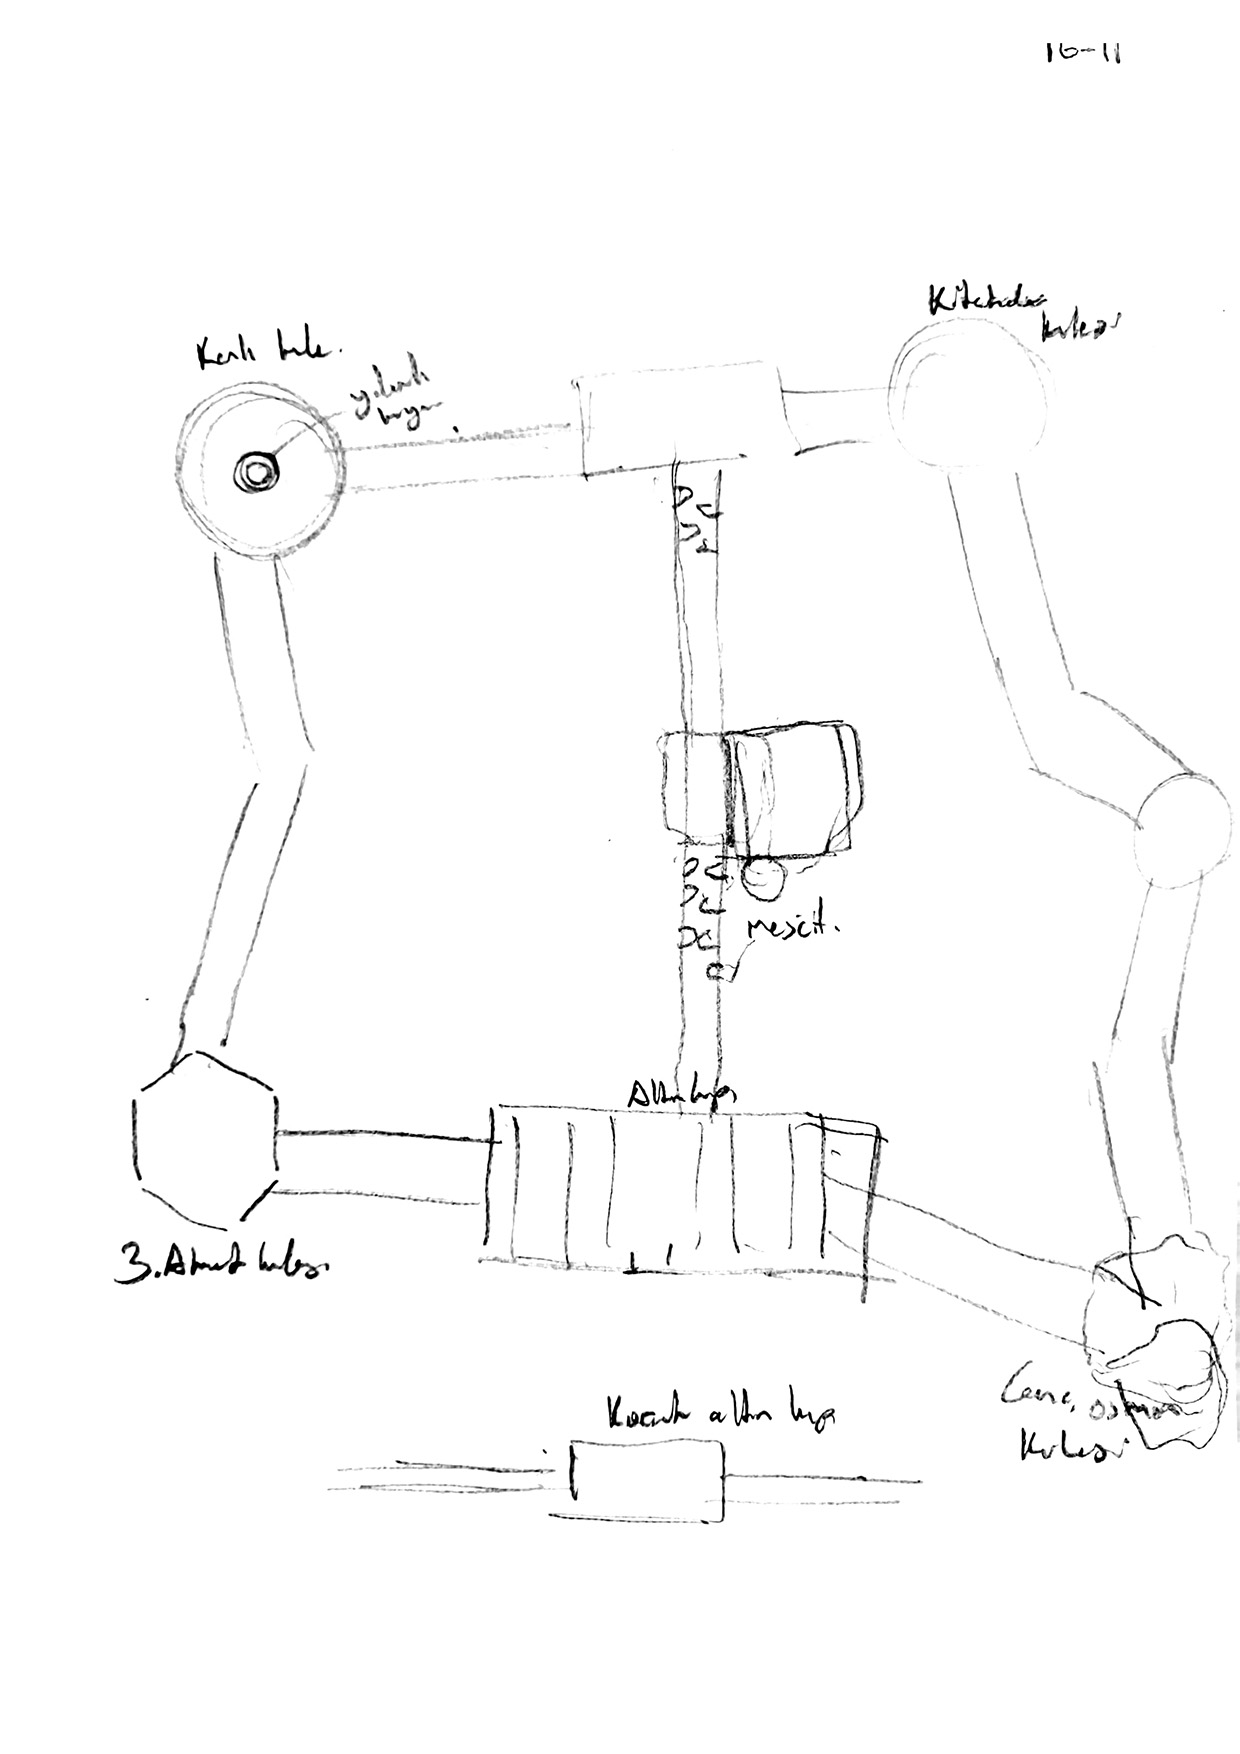 16-11
Kitabeler
kulesi
Kanlı kule.
yılanlı
kuyu
mescit.
Altın kapı
3. Ahmet kulesi
Genç Osman
Kulesi
Küçük altın kapı